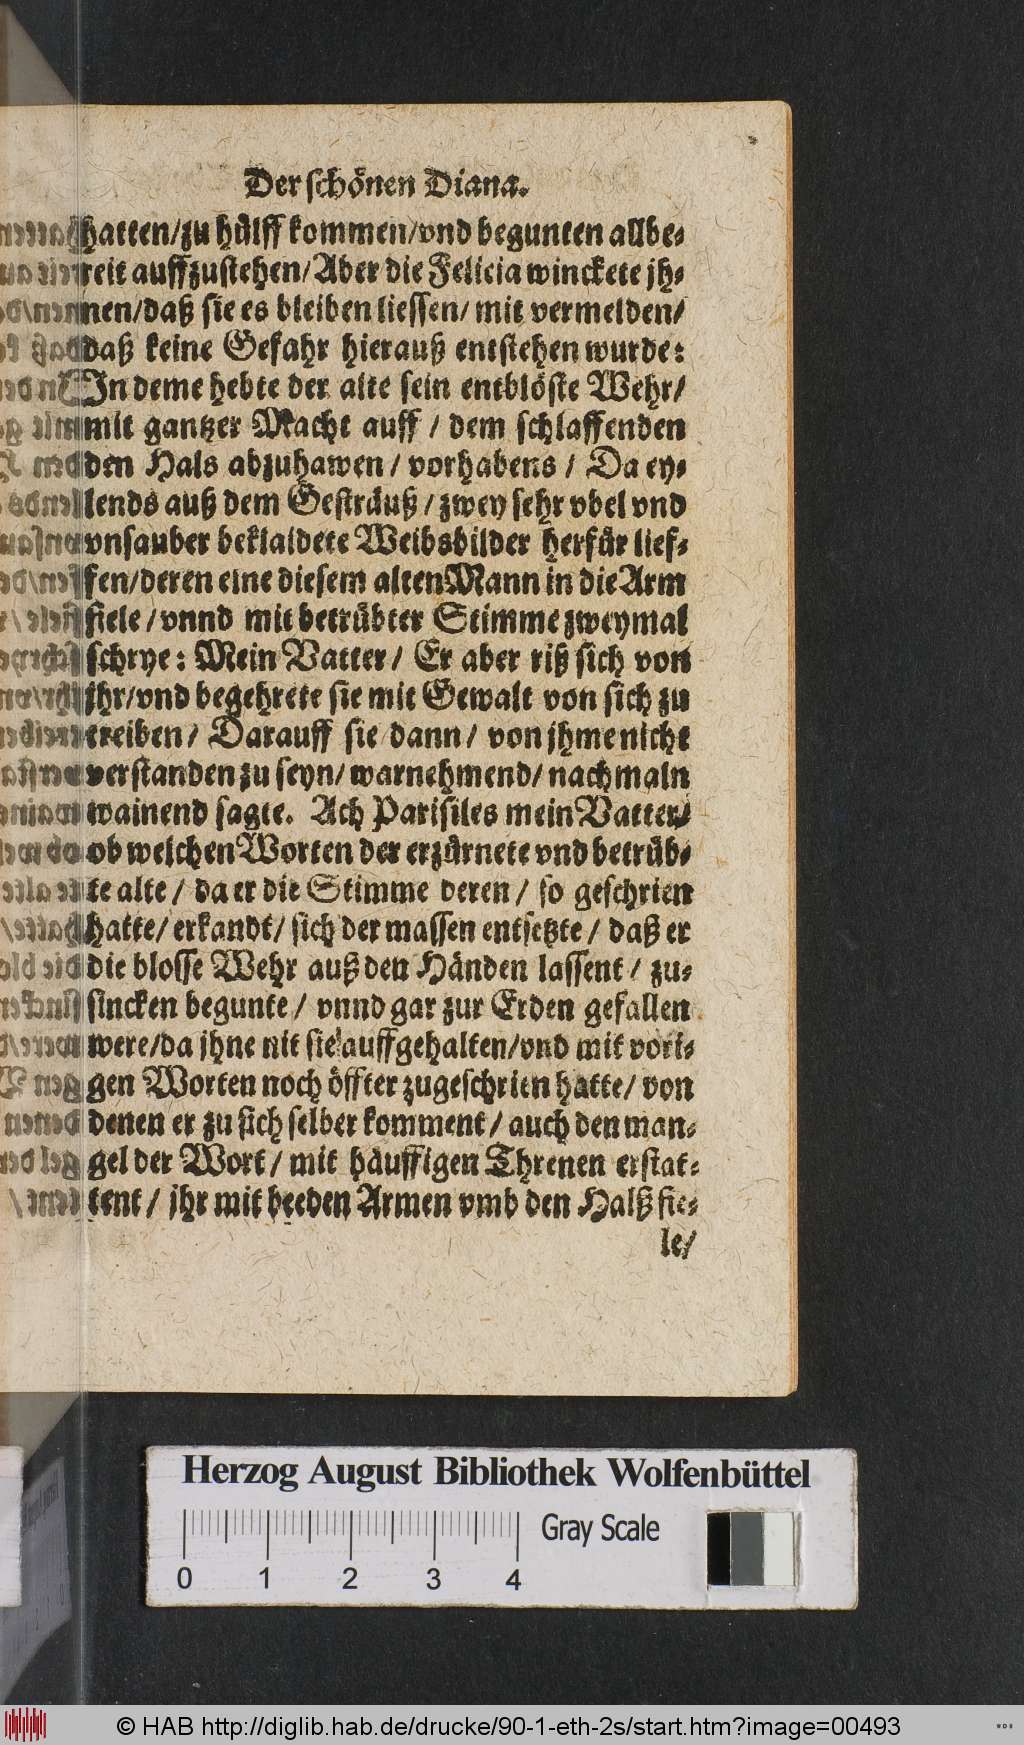 Der schönen Diana.
hatten/zu hülff kommen/vnd begunten allbe-
reit auffzustehen/Aber die Felicia winckete jh-
nen/daß sie es bleiben liessen/ mit vermelden/
daß keine Gefahr hierauß entstehen wurde:
In deme hebte der alte sein entblöste Wehr/
mit gantzer Macht auff / dem schlaffenden
den Hals abzuhawen / vorhabens / Da ey-
lends auß dem Gesträuß / zwey sehr vbel vnd
vnsauber beklaidete Weibsbilder herfür lief-
fen/deren eine diesem alten Mann in die Arm
fiele / vnnd mit betrübter Stimme zweymal
schrye: Mein Vatter / Er aber riß sich von
jhr/vnd begehrete sie mit Gewalt von sich zu
treiben / Darauff sie dann / von jhme nicht
verstanden zu seyn/ warnehmend/ nachmaln
wainend sagte. Ach Parisiles mein Vatter/
ob welchen Worten der erzürnete vnd betrüb-
te alte / da er die Stimme deren / so geschrien
hatte/ erkandt/ sich der massen entsetzte / daß er
die blosse Wehr auß den Händen lassent / zu-
sincken begunte / vnnd gar zur Erden gefallen
were/da jhne nit sie auffgehalten/vnd mit vori-
gen Worten noch öffter zugeschrien hatte/ von
denen er zu sich selber komment / auch den man-
gel der Wort / mit häuffigen Threnen erstat-
tent / jhr mit beeden Armen vmb den Halß fie-
le/
Herzog August Bibliothek Wolfenbüttel
0 1 2 3 4
Gray Scale
© HAB http://diglib.hab.de/drucke/90-1-eth-2s/start.htm?image=00493